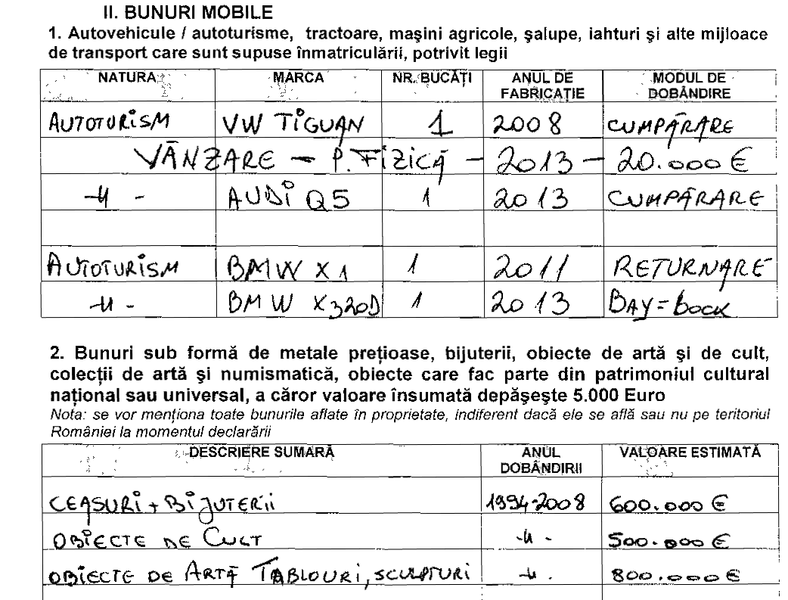 II. BUNURI MOBILE
1. Autovehicule / autoturisme, tractoare, maşini agricole, şalupe, iahturi şi alte mijloace
de transport care sunt supuse înmatriculării, potrivit legii
NATURA MARCA NR. BUCĂŢI ANUL DE FABRICAŢIE MODUL DE DOBÂNDIRE
AUTOTURISM VW TIGUAN 1 2008 CUMPĂRARE
VÂNZARE - P. FIZICĂ - 2013 - 20.000 €
-11- AUDI Q5 1 2013 CUMPĂRARE
AUTOTURISM BMW X1 1 2011 RETURNARE
-11- BMW X320D 1 2013 BAY=BACK
2. Bunuri sub formă de metale preţioase, bijuterii, obiecte de artă şi de cult,
colecţii de artă şi numismatică, obiecte care fac parte din patrimoniul cultural
naţional sau universal, a căror valoare însumată depăşeşte 5.000 Euro
Nota: se vor menţiona toate bunurile aflate în proprietate, indiferent dacă ele se află sau nu pe teritoriul
României la momentul declarării
DESCRIERE SUMARĂ ANUL DOBÂNDIRII VALOARE ESTIMATĂ
CEASURI + BIJUTERII 1994-2008 600.000 €
OBIECTE DE CULT -11- 500.000 €
OBIECTE DE ARTĂ TABLOURI, SCULPTURI -11- 800.000 €